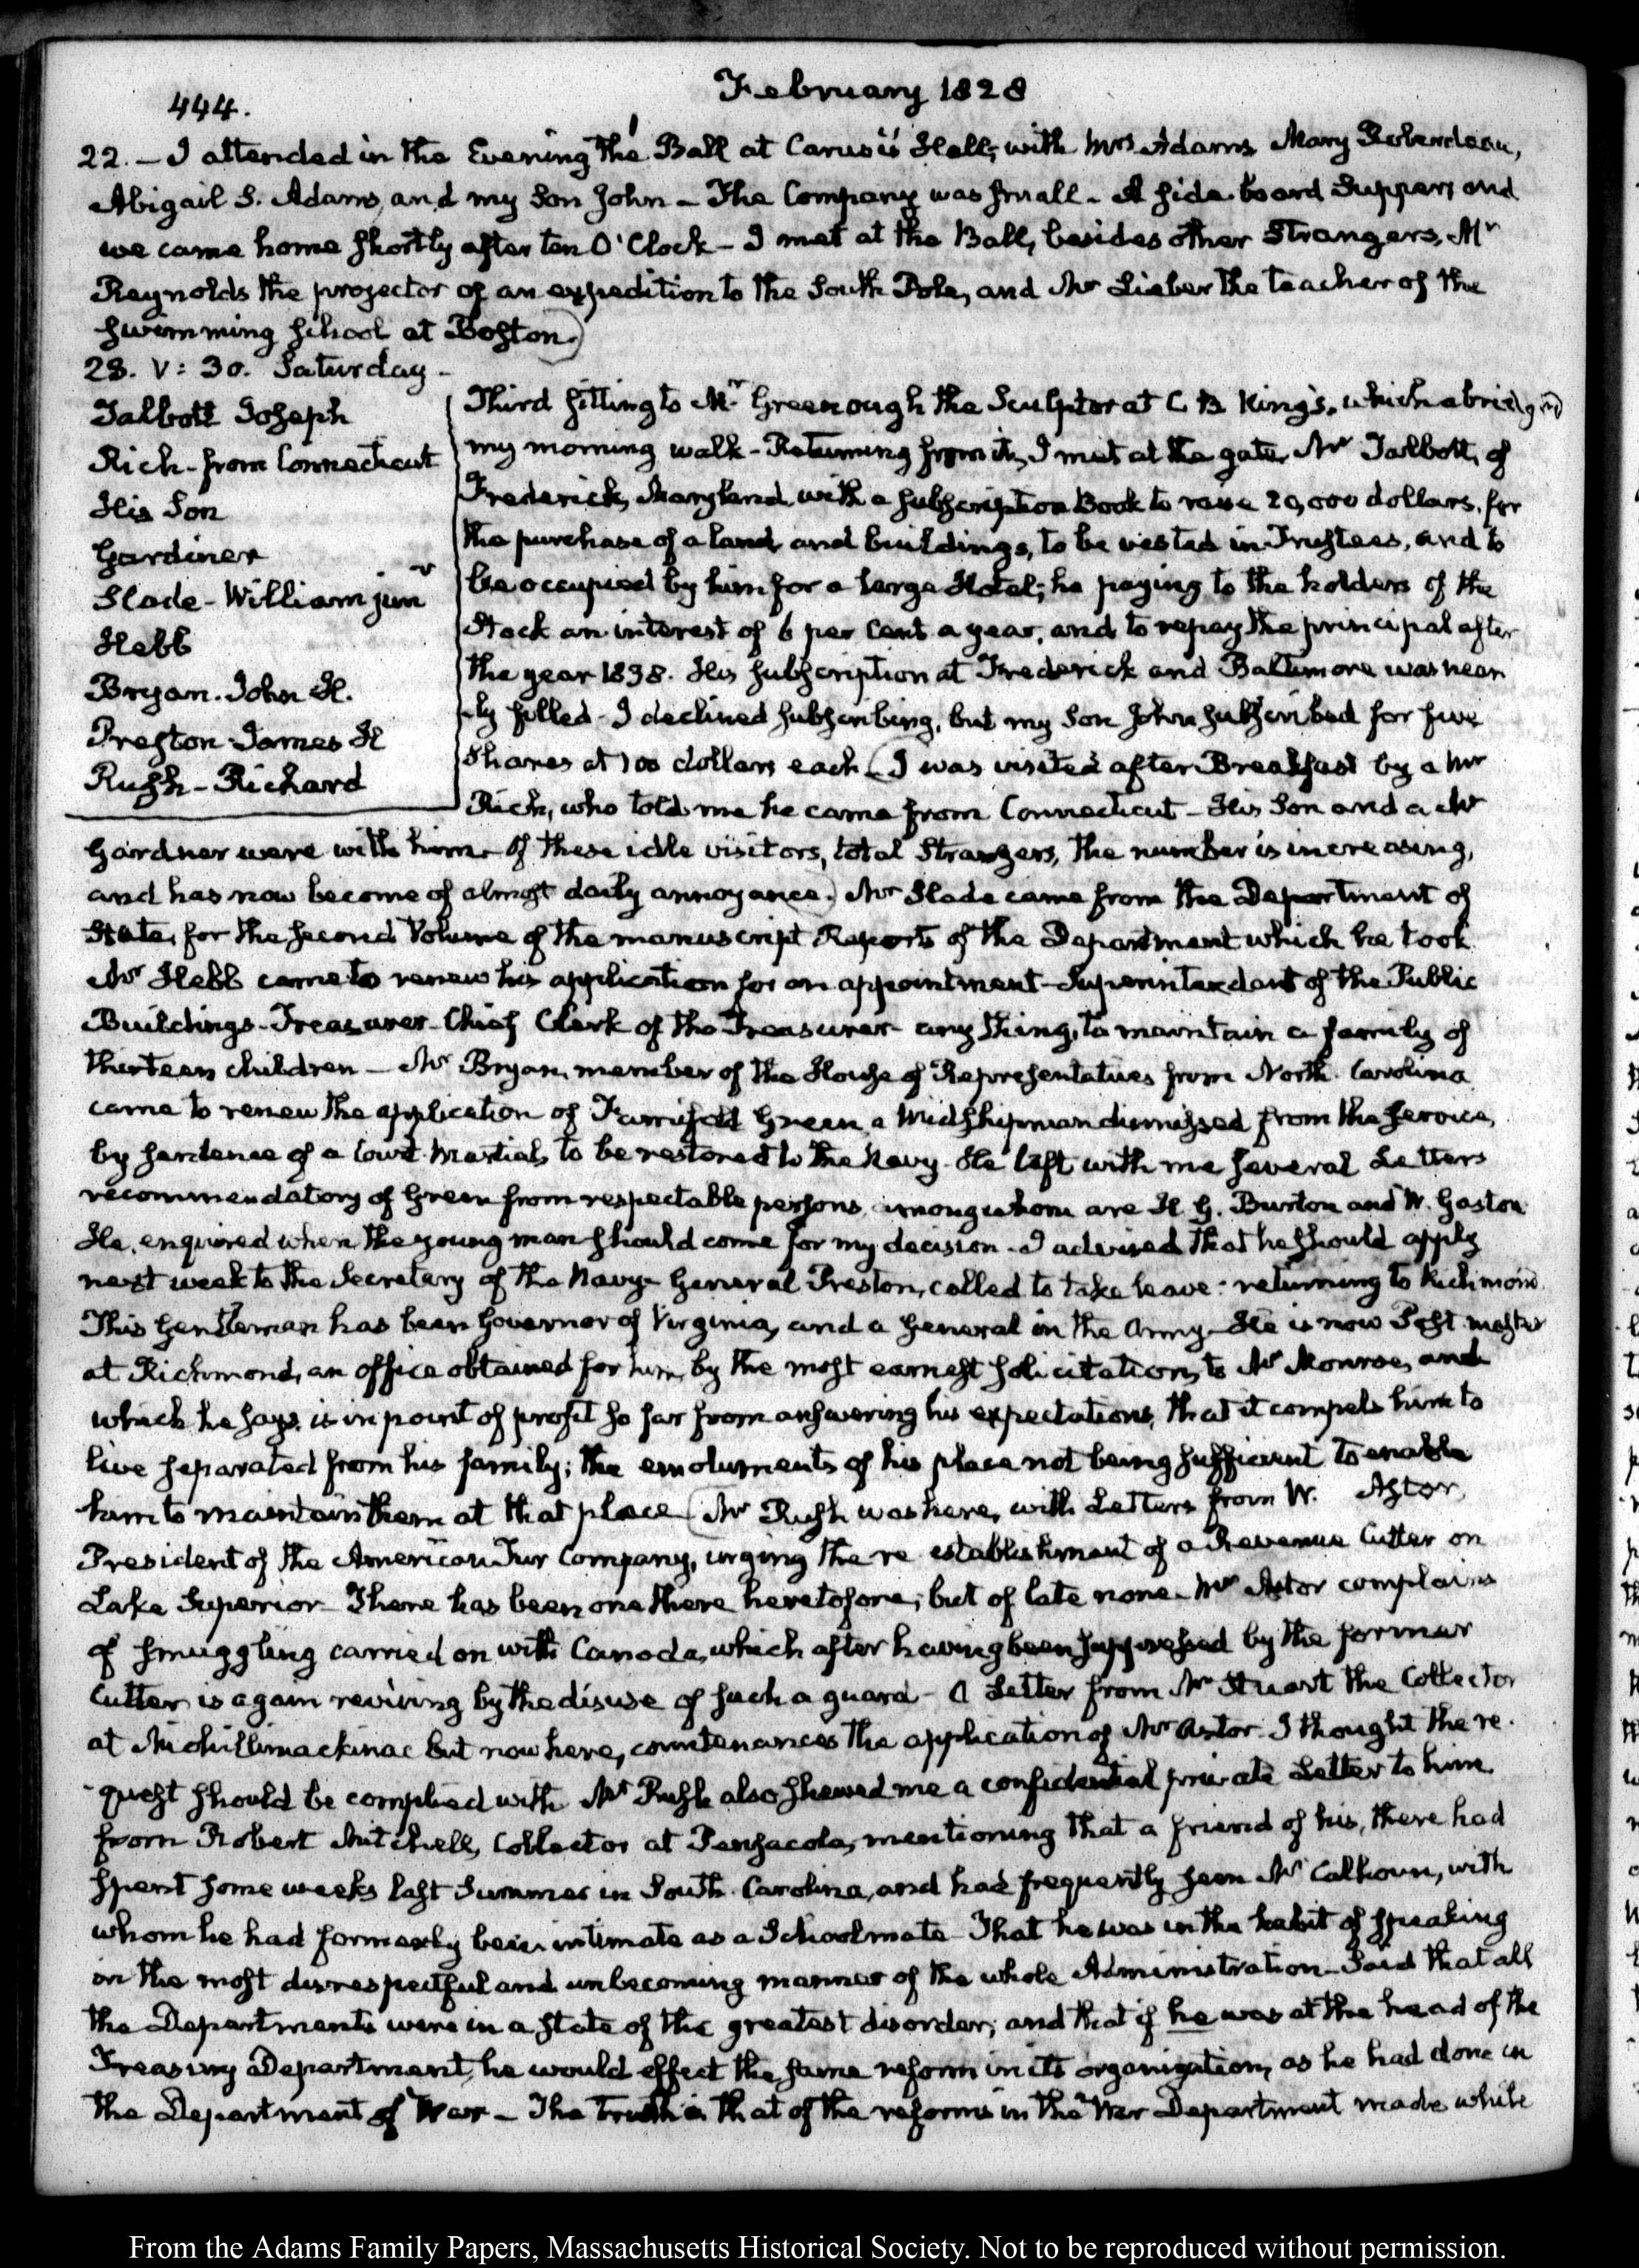 444.
February 1828
22. – I attended in the Evening the Ball at Carusi's Hall, with Mrs Adams Mary Roberdeau,
Abigail S. Adams, and my Son John – The Company was small – A side board Supper, and
we came home shortly after ten O'Clock – I met at the Ball, besides other Strangers, Mr
Reynolds the projector of an expedition to the South Pole, and Mr Lieber the teacher of the
swimming school at Boston.)
23. V: 30. Saturday –
Talbott Joseph
Rich – from Connecticut
His Son
Gardiner
Slade – William junr
Hebb
Bryan. John H.
Preston James H
Rush – Richard
Third sitting to Mr Greenough the Sculptor at C B King's, which abridged
my morning walk – Returning from it, I met at the gate, Mr Talbott, of
Frederick, Maryland with a subscription Book to raise 20,000 dollars, for
the purchase of a land and buildings, to be vested in Trustees, and to
be occupied by him for a large Hotel; he paying to the holders of the
Stock an interest of 6 per Cent a year, and to repay the principal after
the year 1838. His subscription at Frederick and Baltimore was near
-ly filled – I declined subscribing, but my Son John subscribed for five
Shares at 100 dollars each (I was visited after Breakfast by a Mr
Rich, who told me he came from Connecticut – His Son and a Mr
Gardner were with him – Of these idle visitors, total Strangers, the number is increasing,
and has now become of almost daily annoyance.) Mr Slade came from the Department of
State, for the second Volume of the manuscript Reports of the Department which he took
Mr Hebb came to renew his application for an appointment – Superintendant of the Public
Buildings – Treasurer – Chief Clerk of the Treasurer – any thing, to maintain a family of
thirteen children – Mr Bryan, member of the House of Representatives from North Carolina
came to renew the application of Farnifold Green, a Midshipman dismissed from the service,
by sentence of a Court Martial, to be restored to the Navy. He left with me several Letters
recommendatory of Green from respectable persons, among whom are H. G. Burton and W. Gaston
He enquired when the young man should come for my decision – I advised that he should apply
next week to the Secretary of the Navy – General Preston, called to take leave: returning to Richmond
This Gentleman has been Governor of Virginia, and a General in the Army – He is now Post master
at Richmond, an office obtained for him, by the most earnest solicitations, to Mr Monroe, and
which he says, is in point of profit so far from answering his expectations, that it compels him to
live separated from his family; the emoluments of his place not being sufficient to enable
him to maintain them at that place (Mr Rush was here, with Letters from W. Astor,
President of the American Fur Company, urging the re establishment of a Revenue Cutter on
Lake Superior – There has been one there heretofore; but of late none – Mr Astor complains
of smuggling carried on with Canada, which after having been suppressed by the former
Cutter is again reviving by the disuse of such a guard – A Letter from Mr Stuart the Collector
at Michillimackinac but now here, countenances the application of Mr Astor. I thought the re-
-quest should be complied with Mr Rush also shewed me a confidential private Letter to him
from Robert Mitchell, Collector at Pensacola, mentioning that a friend of his, there had
spent some weeks last Summer in South Carolina, and had frequently seen Mr Calhoun, with
whom he had formerly been intimate as a Schoolmate – That he was in the habit of speaking
in the most disrespectful and unbecoming manner of the whole Administration – Said that all
the Departments were in a state of the greatest disorder; and that if he was at the head of the
Treasury Department, he would effect the same reform in its organization, as he had done in
the Department of War – The truth is that of the reforms in the War Department made while
From the Adams Family Papers, Massachusetts Historical Society. Not to be reproduced without permission.